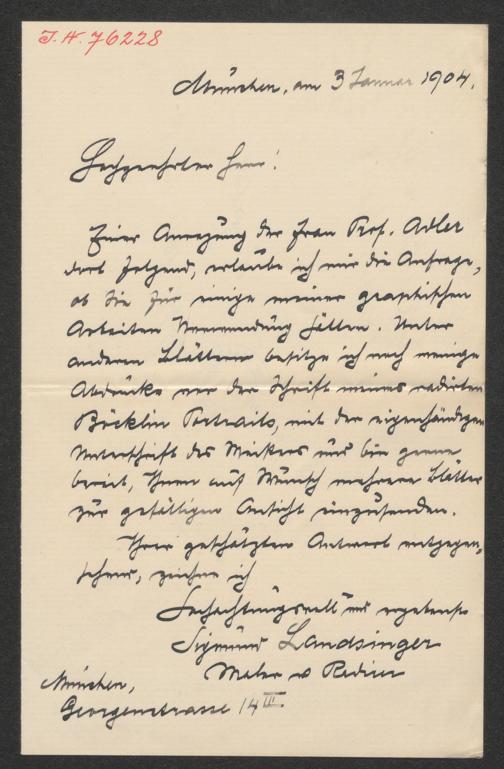 J.N. 76228
München, am 3 Januar 1904.
Hochgeehrter Herr!
Einer Anregung der Frau Prof. Adler
dort folgend, erlaube ich mir die Anfrage,
ob Sie für einige meiner graphischen
Arbeiten Verwendung hätten. Unter
anderen Blättern besitze ich noch wenige
Abdrücke vor der Schrift meines radirten
Böcklin Portraits, mit der eigenhändigen
Unterschrift des Meisters und bin gerne
bereit, Ihnen auf Wunsch mehrere Blätter
zür gefälligen Ansicht einzusenden.
Ihrer geschätzten Antwort entgegen-
sehend, zeichne ich
Hochachtungsvoll und ergebenst
Sigmund Landsinger
Maler u Radirer
München,
Georgenstrasse 14 III.